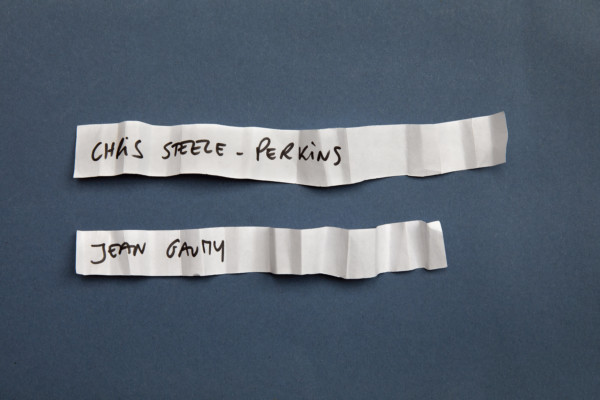 CHRIS STEELE - PERKINS
JEAN GAUMY